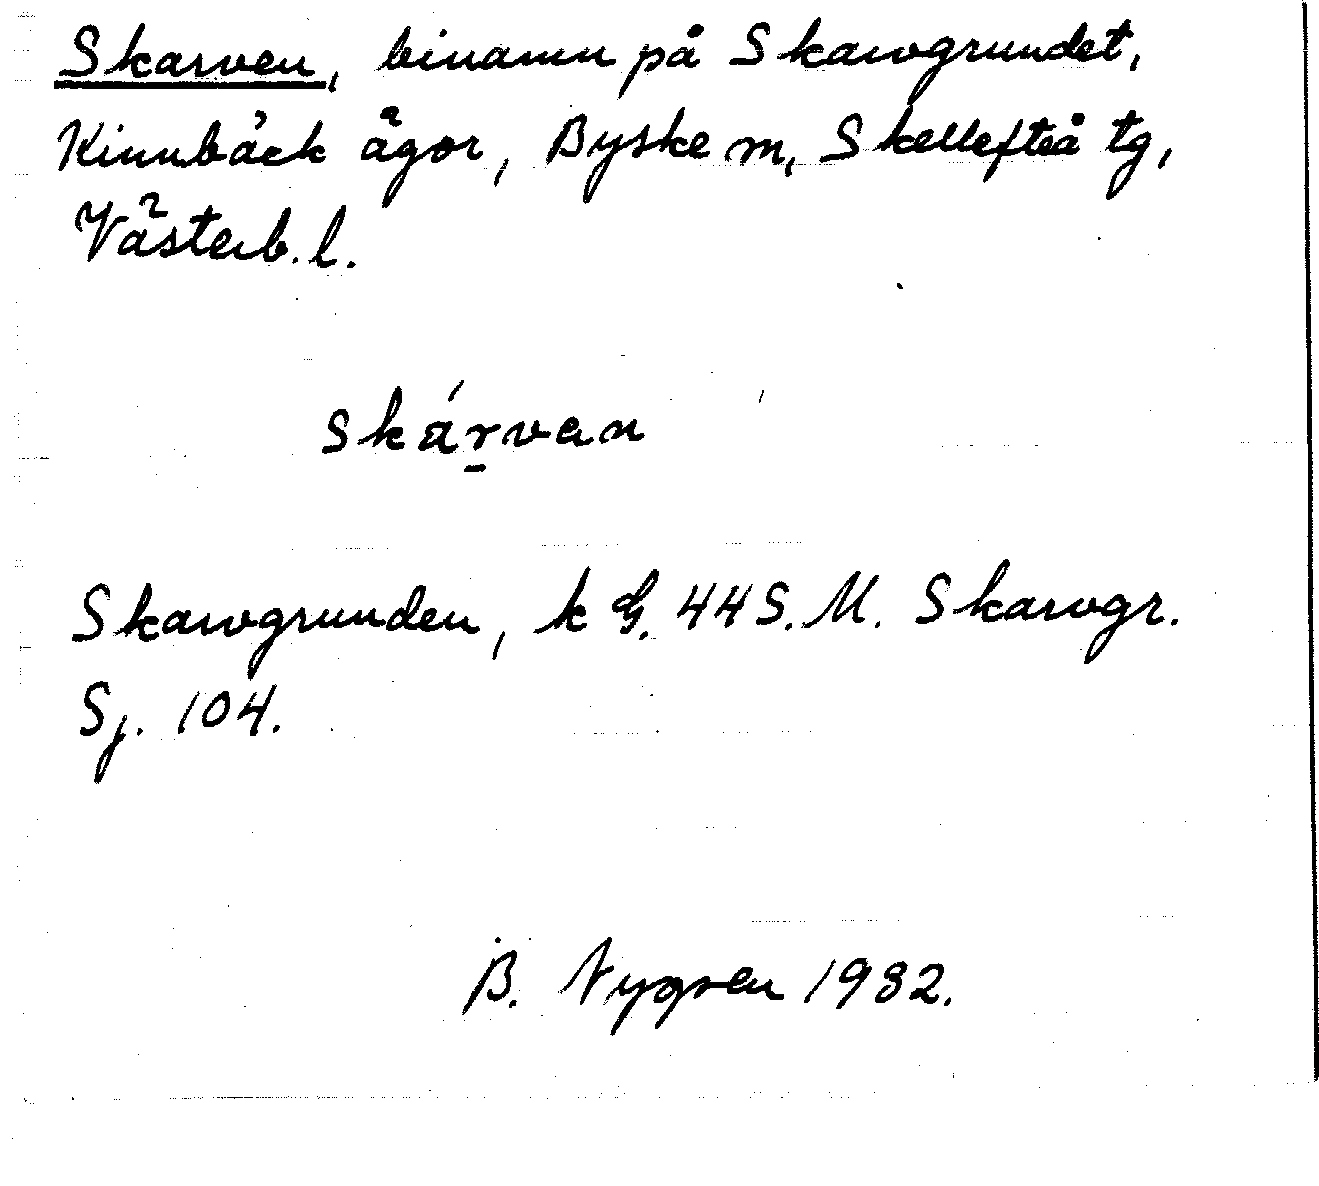 Skarven, binamn på Skarvgrundet,
Kinnbäck ägor, Byske m, Skellefteå tg,
Västerb. l.
skárvan
Skarvgrunden, k G. 44 S. M. Skarvgr.
Sj. 104.
B. Nygren 1932.